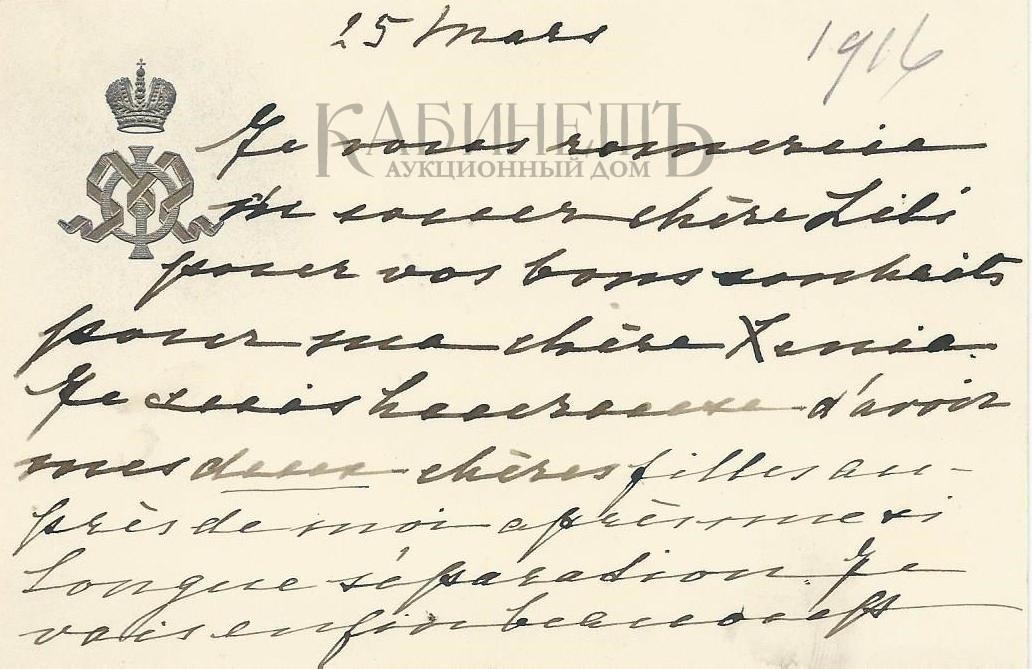 25 Mars
1916
КАБИНЕТЪ
АУКЦИОННЫЙ ДОМ
Je vous remercie
de coeur chère Lili
pour vos bons souhaits
pour ma chère Xenia.
Je suis heureuse d'avoir
mes deux chères filles au-
près de moi après une si
longue séparation. Je
vais enfin beaucoup